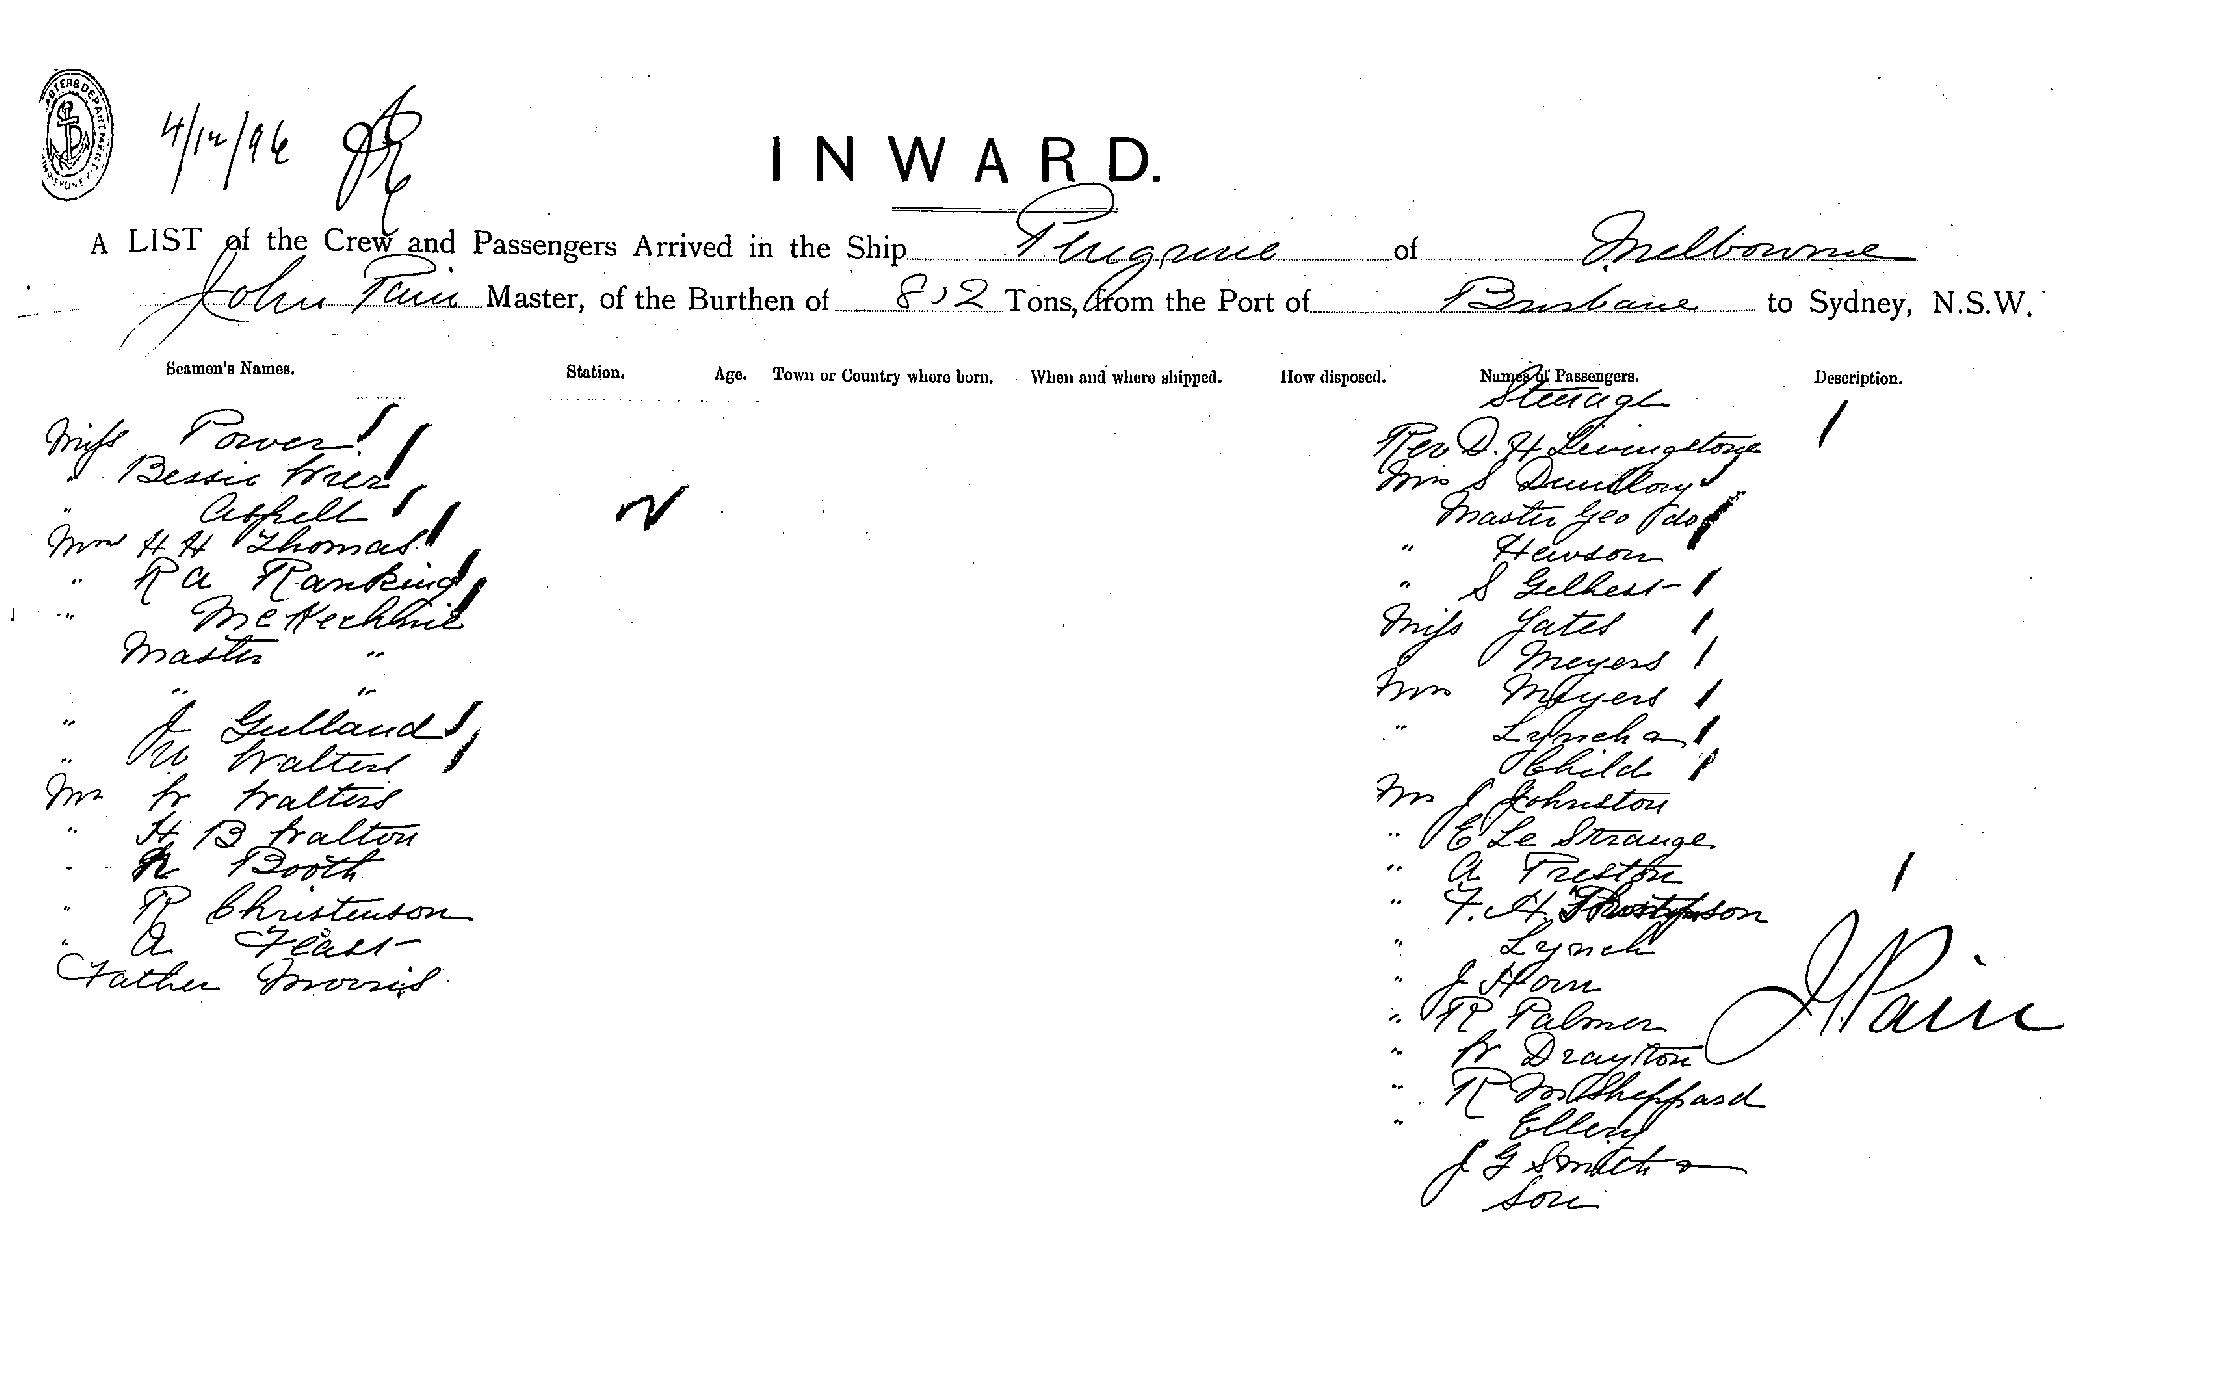 4/12/96
INWARD.
A LIST of the Crew and Passengers Arrived in the Ship Peregrine of Melbourne
John Pain Master, of the Burthen of 812 Tons, from the Port of Brisbane to Sydney, N.S.W.
Seamen's Names. Station. Age. Town or Country where born. When and where shipped. How disposed. Names of Passengers. Description.
Steerage
Miss Power
" Bessie Wrer
" Aspell
Mrs H H Thomas
" R A Ranking
" McKechnie
Master "
" "
" J Gulland
" W Walters
Mr W Walters
" H B Walton
" Booth
" R Christenson
" A Feast
Father Morris
Rev D. H Livingstone
Mrs S
Master Geo do
" Hewson
" S Gelhest
Miss Yates
" Meyers
Mrs Meyers
" Lynch &
Child
Mr J Johnston
" E Le Strange
" A Preston
" F. H.
" Lynch
" J Horn
" R Palmer
" W Drayton
" R M Sheppard
" Ellery
J G Smith &
Son
J Pain